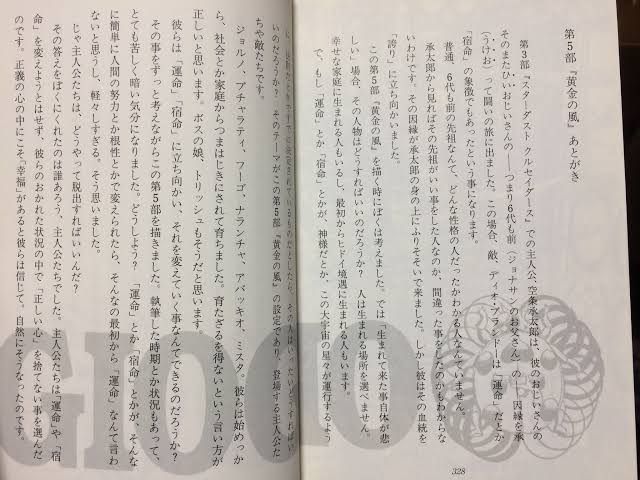 第5部『黄金の風』あとがき
第3部『スターダスト クルセイダース』での主人公、空条承太郎は、彼のおじいさんの
そのまたひい・おじいさんの――つまり6代も前（ジョナサンのお父さん）の――因縁を承
（うけ・お）って闘いの旅に出ました。この場合、敵、ディオ・ブランドーは「運命」だとか
「宿命」の象徴でもあったという事になります。
普通、6代も前の先祖なんて、どんな性格の人だったかわかる人なんていません。
承太郎から見ればその先祖がいい事をした人なのか、間違った事をしたのかもわからな
いわけです。その因縁が承太郎の身の上にふりそそいで来ました。しかし彼はその血統を
「誇り」に立ち向かいました。
この第5部『黄金の風』を描く時にぼくは考えました。では「生まれて来た事自体が悲
しい」場合、その人物はどうすればいいのだろうか？ 人は生まれる場所を選べません。
幸せな家庭に生まれる人もいるし、最初からヒドイ境遇に生まれる人もいます。
で、もし「運命」とか「宿命」とかが、神様だとか、この大宇宙の星々が運行するよう
328
に
設定されているものだとしたら、その人はいったいどうすればい
いのだろうか？ そのテーマがこの第5部『黄金の風』の設定であり、登場する主人公た
ちや敵たちです。
ジョルノ、ブチャラティ、フーゴ、ナランチャ、アバッキオ、ミスタ。彼らは始めっか
ら、社会とか家庭からつまはじきにされて育ちました。育たざるを得ないという言い方が
正しいと思います。ボスの娘、トリッシュもそうだと思います。
彼らは「運命」「宿命」に立ち向かい、それを変えていく事なんてできるのだろうか？
その事をずっと考えながらこの第5部を描きました。執筆した時期とか状況もあって、
とても苦しく暗い気分になりました。どうしよう？ 「運命」とか「宿命」とかが、そんな
に簡単に人間の努力とか根性とかで変えられたら、そんなの最初から「運命」なんて言わ
ないと思うし、軽々しすぎる。そう思いました。
じゃ主人公たちは、どうやって脱出すればいいんだ？
その答えをぼくにくれたのは誰あろう、主人公たちでした。主人公たちは「運命」や「宿
命」を変えようとはせず、彼らのおかれた状況の中で「正しい心」を捨てない事を選んだ
のです。正義の心の中にこそ「幸福」があると彼らは信じて。自然にそうなったのです。
GIOGIO